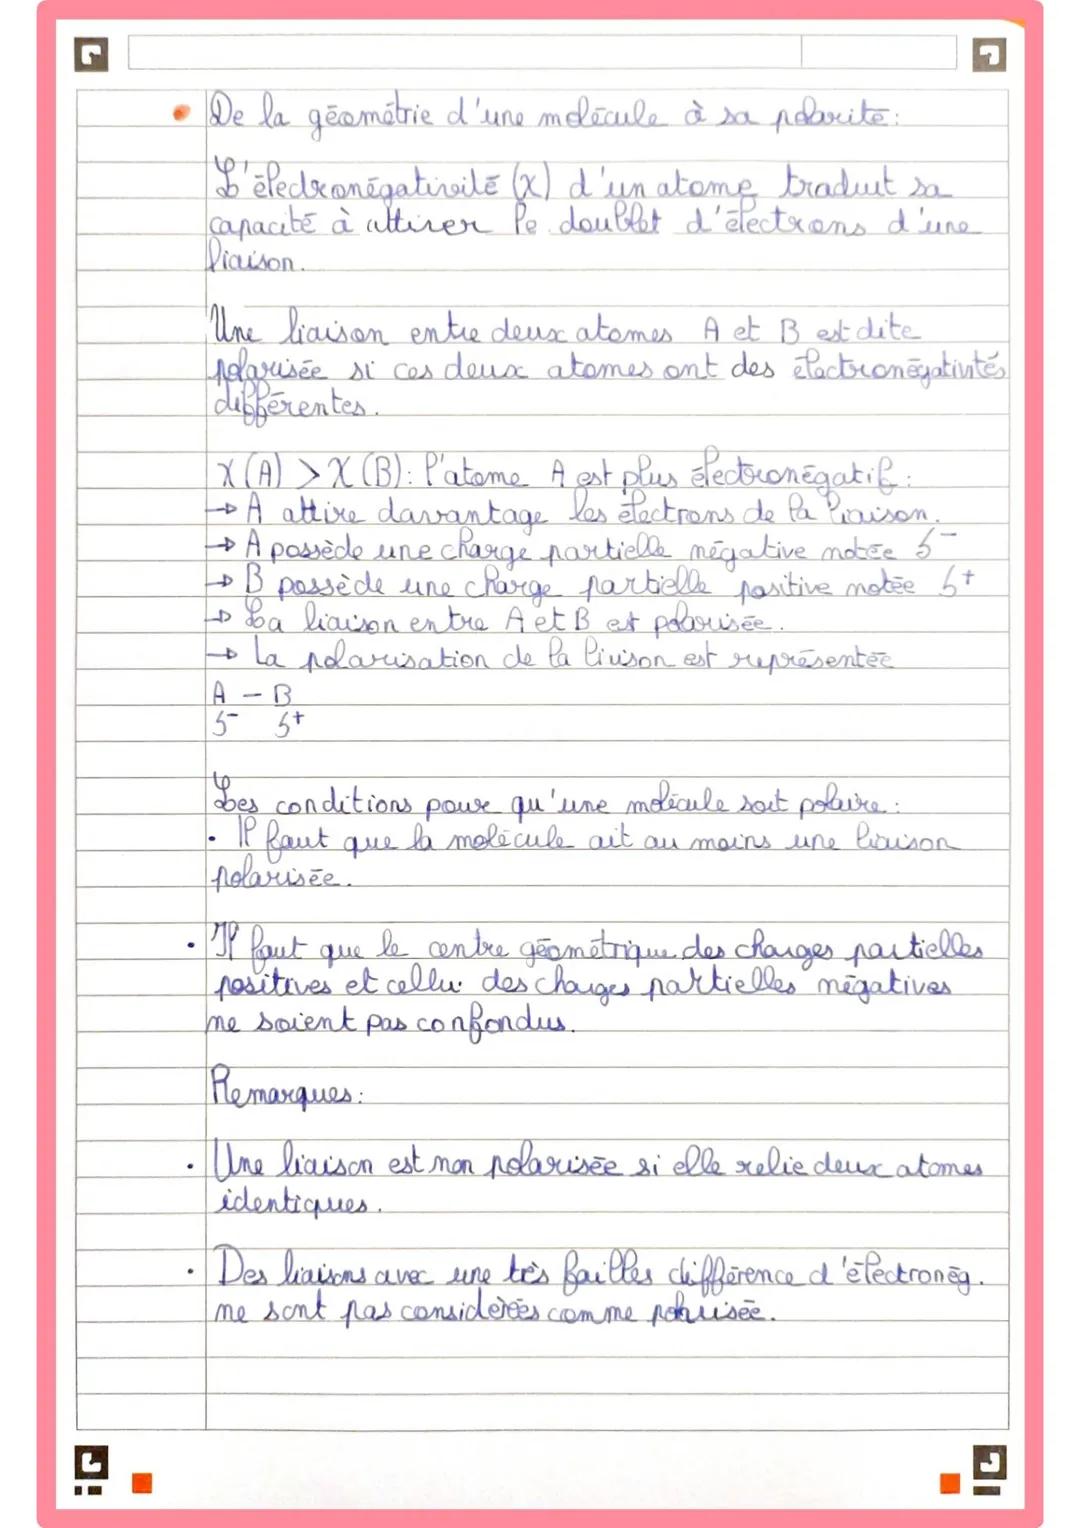 De la géométrie d'une molécule à sa polarité:
L'électronégativité (χ) d'un atome traduit sa
capacité à attirer le doublet d'électrons d'une
liaison.
Une liaison entre deux atomes A et B est dite
polarisée si ces deux atomes ont des électronégativités
différentes.
χ(A) > χ(B): l'atome A est plus électronégatif:
→ A attire davantage les électrons de la liaison.
→ A possède une charge partielle négative notée δ⁻
→ B possède une charge partielle positive notée δ⁺
→ La liaison entre A et B est polarisée.
→ La polarisation de la liuison est représentée
A - B
δ⁻ δ⁺
Les conditions pour qu'une molécule soit polaire:
• Il faut que la molécule ait au moins une liaison
polarisée.
• Il faut que le centre géométrique des charges partielles
positives et cellui des charges partielles négatives
ne soient pas confondus.
Remarques:
• Une liaison est non polarisée si elle relie deux atomes
identiques.
• Des liaisons avec une très failles différence d'électronég.
ne sont pas considérées comme polarisée.